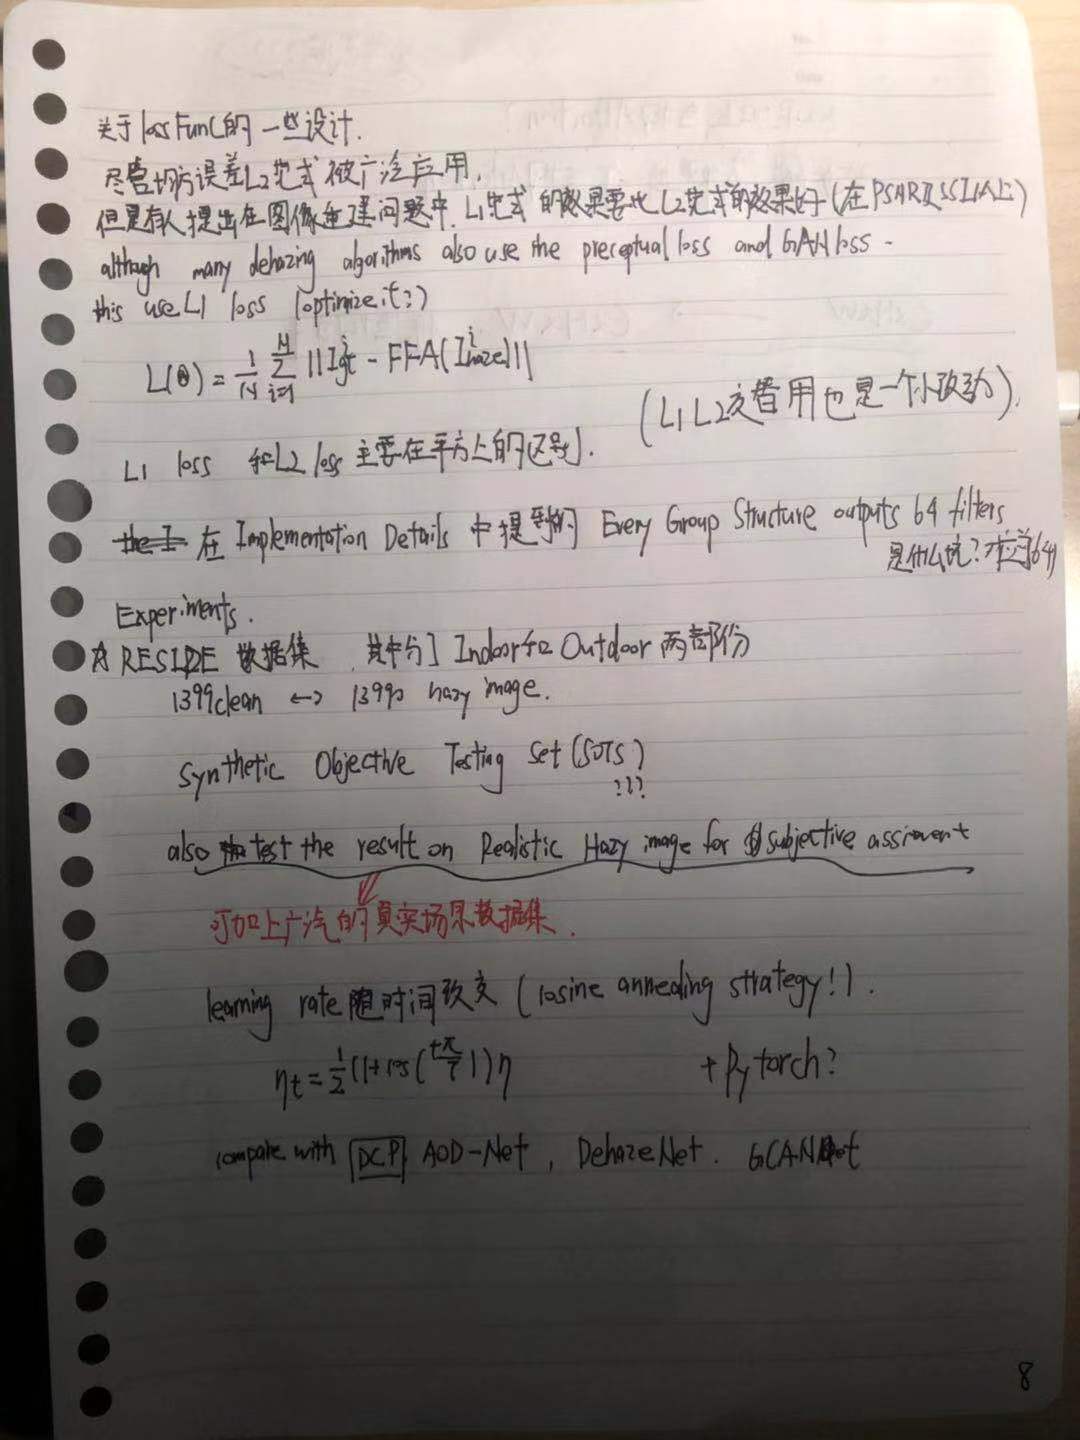 关于lossFunc的一些设计.
尽管均方误差L2范式被广泛应用,
但是有人提出在图像重建问题中, L1范式的效果要比L2范式的效果好(在PSNR及SSIM上)
although many dehazing algorithms also use the preceptual loss and GAN loss -
this use L1 loss (optimize it?)
L(θ) = 1/N Σ_{i=1}^{N} ||I_{gt}^{i} - FFA(I_{haze}^{i})||
(L1 L2交替用也是一个小改动).
L1 loss 和L2 loss 主要在平方上的区别.
在 Implementation Details 中提到的 Every Group Structure outputs 64 filters
是什么坑?
Experiments.
☆ RESIDE 数据集, 其中分 Indoor和Outdoor 两部份
1399clean ↔ 13990 hazy image.
Synthetic Objective Testing Set (SOTS)
???
also test the result on Realistic Hazy image for subjective assivment
可加上广汽的真实场景数据集.
learning rate随时间改变 (cosine annealing strategy!).
η_t = 1/2 (1+cos(tπ/T))η
+ Pytorch?
compare with DCP AOD-Net, DehazeNet. GCANNet
8